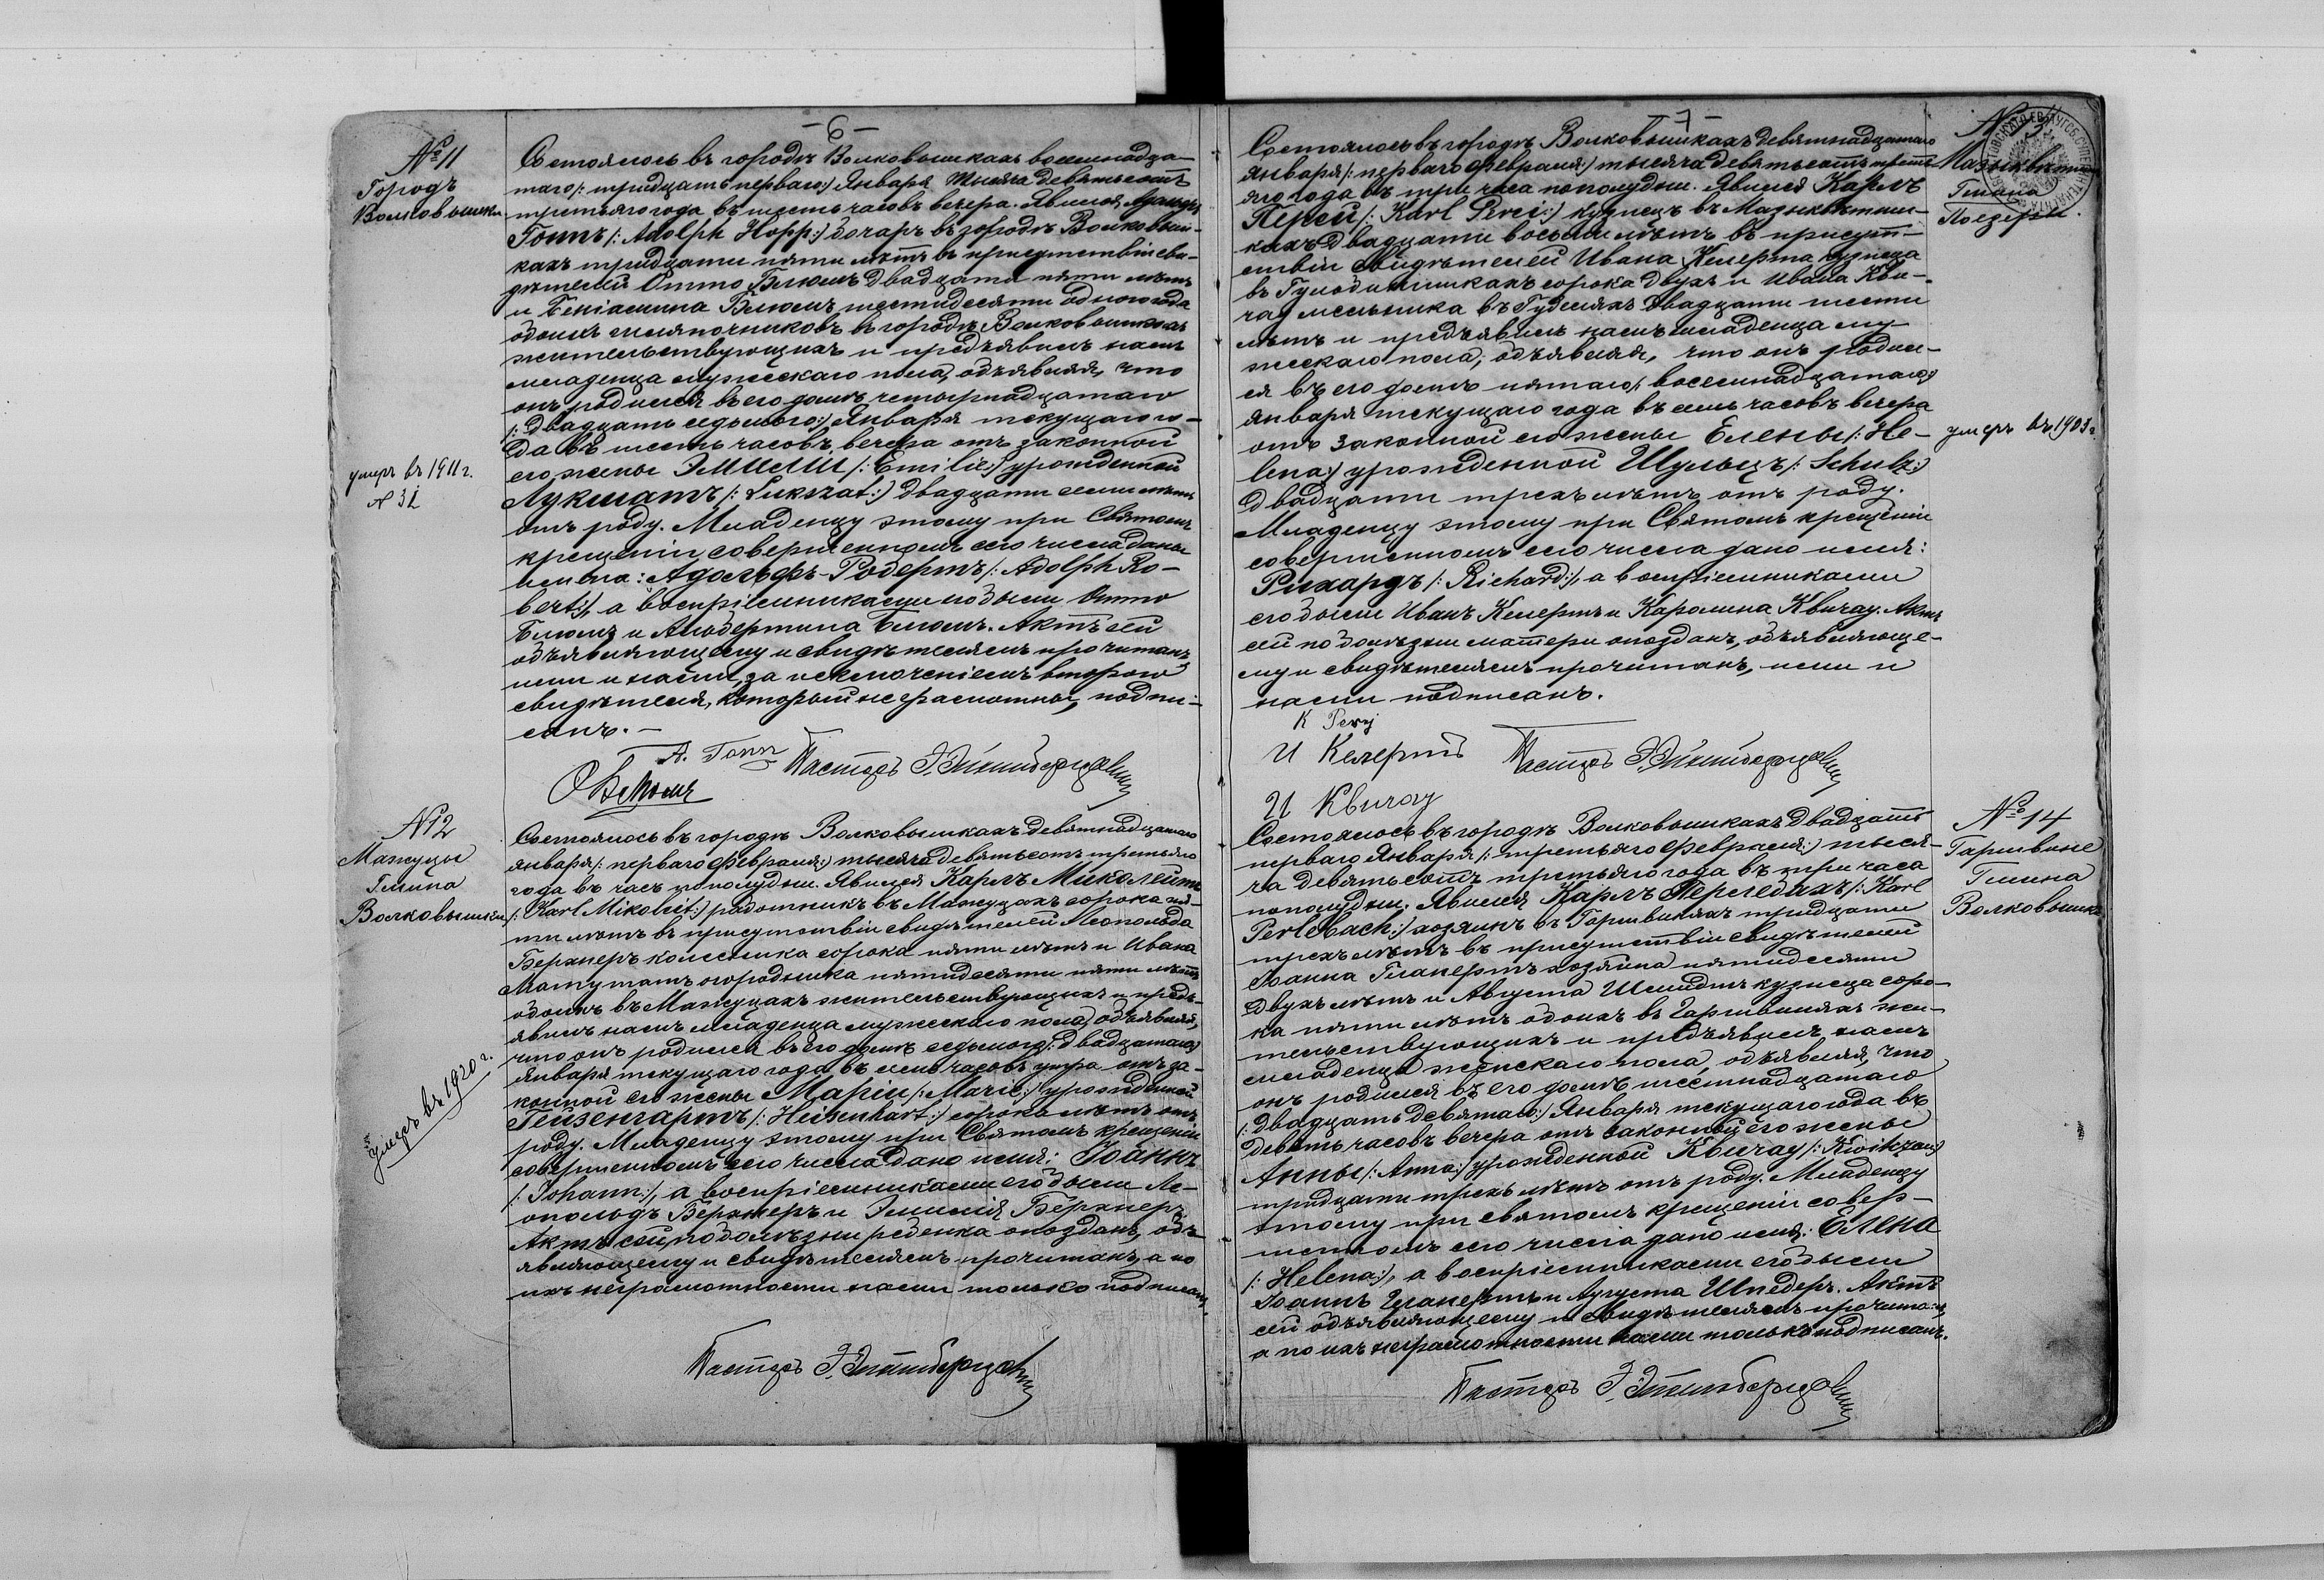 - 6 -
№ 11
Городъ
Волковышки
Состоялось въ городѣ Волковышкахъ восемнадца-
таго /: тридцать перваго:/ Января тысяча девятьсотъ
третьяго года въ шесть часовъ вечера. Явился Адольфъ
Гоппъ /: Adolph Hopp:/ бочаръ въ городѣ Волковыш-
кахъ тридцати пяти лѣтъ въ присутствіи сви-
дѣтелей Отто Блюмъ двадцати пяти лѣтъ
и Беніамина Блюмъ шестидесяти одного года
обоихъ шляпочниковъ въ городѣ Волковышкахъ
жительствующихъ и предъявилъ намъ
младенца мужескаго пола, объявляя, что
онъ родился въ его домѣ четырнадцатаго
/: двадцать седьмого:/ Января текущаго го-
да въ шесть часовъ вечера отъ законной
его жены Эмиліи /: Emilie:/ урожденной
Лукшатъ /: Lukszat:/ двадцати семи лѣтъ
отъ роду. Младенцу этому при Святомъ
крещеніи, совершенномъ сего числа даны
имена: Адольфъ-Робертъ /: Adolph Ro-
bert:/, а воспріемниками его были Отто
Блюмъ и Альбертина Блюмъ. Актъ сей
объявляющему и свидѣтелямъ прочитанъ,
ими и нами, за исключеніемъ второго
свидѣтеля, который неграмотный, подпи-
санъ. -
умеръ въ 1911 г.
№ 31
А. Гоппъ
О Блюмъ
Пасторъ
№ 12
Мажуцы
Гмина
Волковышки
Состоялось въ городѣ Волковышкахъ девятнадцатаго
января /: перваго февраля:/ тысяча девятьсотъ третьяго
года въ часъ пополудни. Явился Карлъ Миколейтъ
/: Karl Mikoleit:/ работникъ въ Мажуцахъ сорока пя-
ти лѣтъ въ присутствіи свидѣтелей Леопольда
Берхнеръ колесника сорока пяти лѣтъ и Ивана
Матутатъ огородника пятидесяти пяти лѣтъ
обоихъ въ Мажуцахъ жительствующихъ и предъ-
явилъ намъ младенца мужескаго пола, объявляя,
что онъ родился въ его домѣ седьмого /: двадцатаго:/
января текущаго года въ семь часовъ утра отъ за-
конной его жены Маріи /: Marie:/ урожденной
Гейзенгартъ /: Heisenhart:/ сорока лѣтъ отъ
роду. Младенцу этому при Святомъ крещеніи
совершенномъ сего числа дано имя: Іоаннъ
/: Johann:/, а воспріемниками его были Ле-
опольдъ Берхнеръ и Эмилія Берхнеръ.
Актъ сей, по болѣзни ребенка опозданъ, объ-
являющему и свидѣтелямъ прочитанъ, а по
ихъ неграмотности нами только подписанъ.
умеръ въ 1920 г.
Пасторъ
- 7 -
Гмина
Поезеры.
Состоялось въ городѣ Волковышкахъ девятнадцатаго
января /: перваго февраля:/ тысяча девятьсотъ треть-
яго года въ три часа пополудни. Явился Карлъ
Перей /: Karl Perei:/ кузнецъ въ Мазыкѣтиш-
кахъ двадцати восьми лѣтъ въ присут-
ствіи свидѣтелей Ивана Келерта кузнеца
въ сорока двухъ и Ивана Кви-
чау мельника въ Гуделяхъ двадцати шести
лѣтъ и предъявилъ намъ младенца му-
жескаго пола, объявляя, что онъ родил-
ся въ его домѣ пятаго /: восемнадцатаго:/
Января текущаго года въ семь часовъ вечера
отъ законной его жены Елены /: He-
lena:/ урожденной Шульцъ /: Schulz:/
двадцати трехъ лѣтъ отъ роду.
Младенцу этому при Святомъ крещеніи
совершенномъ сего числа дано имя:
Рихардъ /: Richard:/, а воспріемниками
его были Иванъ Келертъ и Каролина Квичау. Актъ
сей по болѣзни матери опозданъ, объявляюще-
му и свидѣтелямъ прочитанъ, ими и
нами подписанъ.
умеръ въ 1903 г.
К Perej
И Келертъ
И Квичау
Пасторъ
№ 14
Гаршвине
Гмина
Волковышки
Состоялось въ городѣ Волковышкахъ двадцать
перваго Января /: третьяго февраля:/ тыся-
ча девятьсотъ третьяго года въ три часа
пополудни. Явился Карлъ Перлебахъ /: Karl
Perlebach:/ хозяинъ въ Гаршвиняхъ тридцати
трехъ лѣтъ въ присутствіи свидѣтелей
Іоанна Гланертъ хозяина пятидесяти
двухъ лѣтъ и Августа Шмидтъ кузнеца соро-
ка пяти лѣтъ обоихъ въ Гаршвиняхъ жи-
тельствующихъ и предъявилъ намъ
младенца женскаго пола, объявляя, что
онъ родился въ его домѣ шестнадцатаго
/: двадцать девятаго:/ Января текущаго года въ
девять часовъ вечера отъ законной его жены
Анны /: Anna:/ урожденной Квичау
тридцати трехъ лѣтъ отъ роду. Младенцу
этому при святомъ крещеніи совер-
шенномъ сего числа дано имя: Елена
/: Helena:/, а воспріемниками его были
Іоаннъ Гланертъ и Августа Шпедеръ. Актъ
сей объявляющему и свидѣтелямъ прочитанъ,
а по ихъ неграмотности нами только подписанъ.
Пасторъ